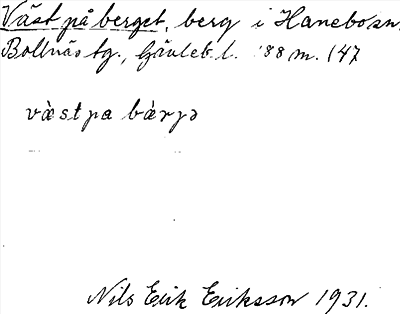 Väst på berget, berg i Hanebo sn.
Bollnäs tg., Gävleb. l. 88 m. (47
väst pa bärjə
Nils Erik Eriksson 1931.